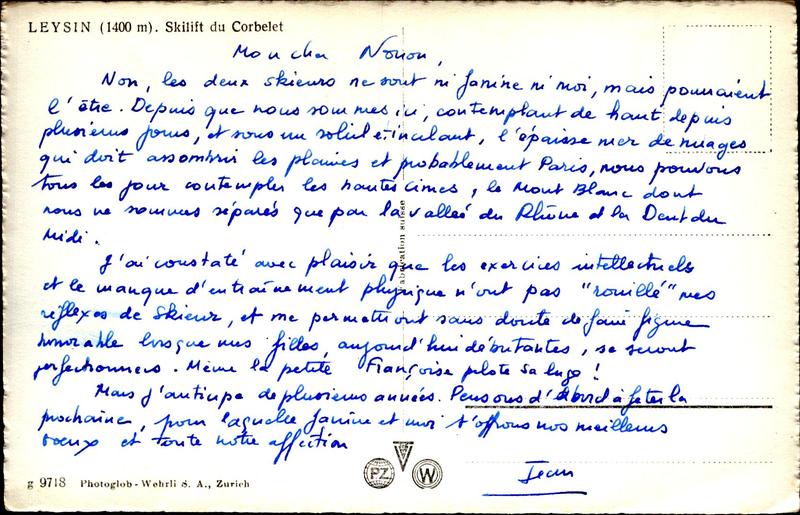 LEYSIN (1400 m). Skilift du Corbelet
Mon cher Nonon,
Non, les deux skieurs ne sont ni Janine ni moi, mais pourraient
l'être. Depuis que nous sommes ici, contemplant de haut, depuis
plusieurs jours, et sous un soleil étincelant, l'épaisse mer de nuages
qui doit assombrir les plaines et probablement Paris, nous pouvons
tous les jour contempler les hautes cimes, le Mont Blanc dont
nous ne sommes séparés que par la vallée du Rhône et la Dent du
Midi.
J'ai constaté avec plaisir que les exercices intellectuels
et le manque d'entraînement physique n'ont pas "rouillé" mes
réflexes de skieur, et me permettront sans doute de faire figure
honorable lorsque mes filles, aujourd'hui débutantes, se seront
perfectionnées. Même la petite Françoise pilote sa luge !
Mais j'anticipe de plusieurs années. Pensons d'abord à fêter la
prochaine, pour laquelle Janine et moi t'offrons nos meilleurs
voeux et toute notre affection
Jean
fabrication suisse
PZ W
g 9718 Photoglob-Wehrli S. A., Zurich